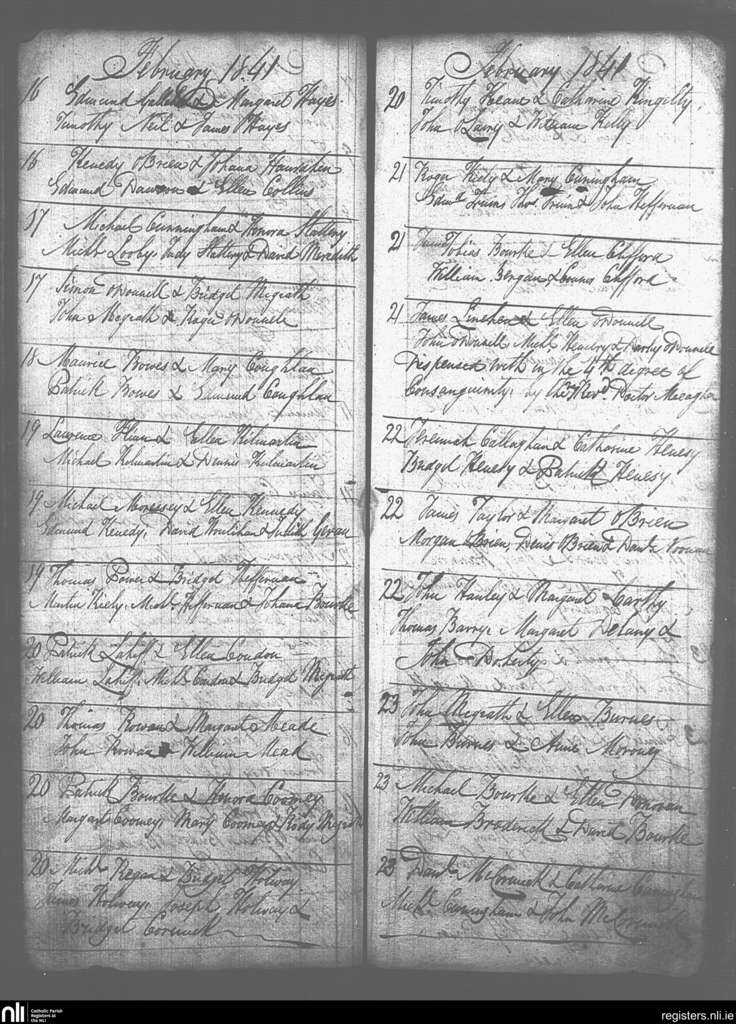 February 1841
16 Edmund & Margaret Hayes
Timothy Neil & James Hayes
16 Kenedy OBrien & Johana Hanrahan
Edmund Dawson & Ellen Collins
17 Michael Cunningham & Honora Slattery
Michl Looby Judy Slattery & David Meredith
17 Simon ODonnell & Bridget Megrath
John Megrath & Roger ODonnell
18 Maurice Bowes & Mary Coughlan
Patrick Bowes & Edmund Coughlan
19 Lawrence & Ellen Kilmartin
Michael Kilmartin & Dennis Kilmartin
19 Michael & Ellen Kennedy
Edmund Kenedy, David Houlihan & Judith
19 Thomas Power & Bridget Heffernan
Martin Kiely, Michl Heffernan & Johana Bourke
20 Patrick Lahiff & Ellen Condon
William Lahiff, Michl Condon & Bridget Megrath
20 Thomas Rowan & Margaret Meade
John Rowan & William Mead
20 Patrick Bourke & Honora Cooney
Margaret Cooney, Mary Cooney & Rody Megrath
20 Michl Regan & Bridget Holway
James Holway, Joseph Holway &
Bridget Cormick
February 1841
20 Timothy Keane & Catharine
John & William Kelly
21 Roger & Mary Cuningham
Thos & John Heffernan
21 Tobias Bourke & Ellen Clifford
William Bergan & Clifford
21 James Linehen & Ellen ODonnell
John ODonnell Michl & Darby ODonnell
Dispensed with in the 4th degree of
Consanguinity. by the Revd Doctor Meagher
22 Jeremiah Callaghan & Catharine Henesy
Bridget Henesy & Patrick Henesy
22 James Taylor & Margaret OBrien
Morgan OBrien, Denis OBrien & Danl Noonan
22 John Hanley & Margaret Carthy
Thomas Barry, Margaret Delany &
John Doherty
23 John Megrath & Ellen Burnes
John Burnes & Anne Moroney
23 Michael Bourke & Ellen Donovan
William Broderick & David Bourke
23 Danl McCormick & Catharine Cuningham
Michl Cuningham & John McCormick
nli Catholic Parish
Registers at
the NLI
registers.nli.ie